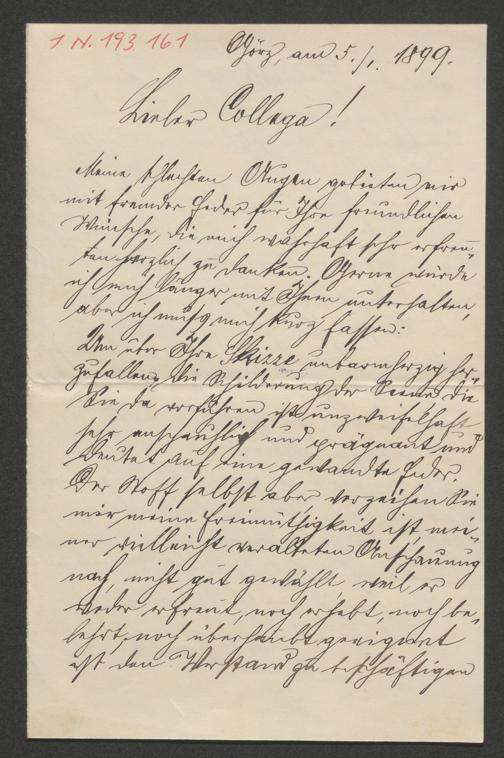 1 N. 193 161
Görz, am 5./1. 1899.
Lieber Collega!
Meine schlechten Augen gebieten mir
mit fremder Feder für Ihre freundlichen
Wünsche, die mich wahrhaft sehr erfreu-
ten herzlich zu danken. Gerne würde
ich mich länger mit Ihnen unterhalten,
aber ich muß mich kurz fassen:
Um über Ihre Skizze unbarmherzig her-
zufallen, die Schilderung der Scene die
Sie da vorführen ist unzweifelhaft
sehr anschaulich und prägnant und
deutet auf eine gewandte Feder.
Der Stoff selbst aber verzeihen Sie
mir meine Freimüthigkeit, ist, mei-
ner vielleicht veralteten Anschauung
nach, nicht gut gewählt, weil er
weder erfreut, noch erhebt, noch be-
lehrt, noch überhaupt geeignet
ist den Verstand zu beschäftigen